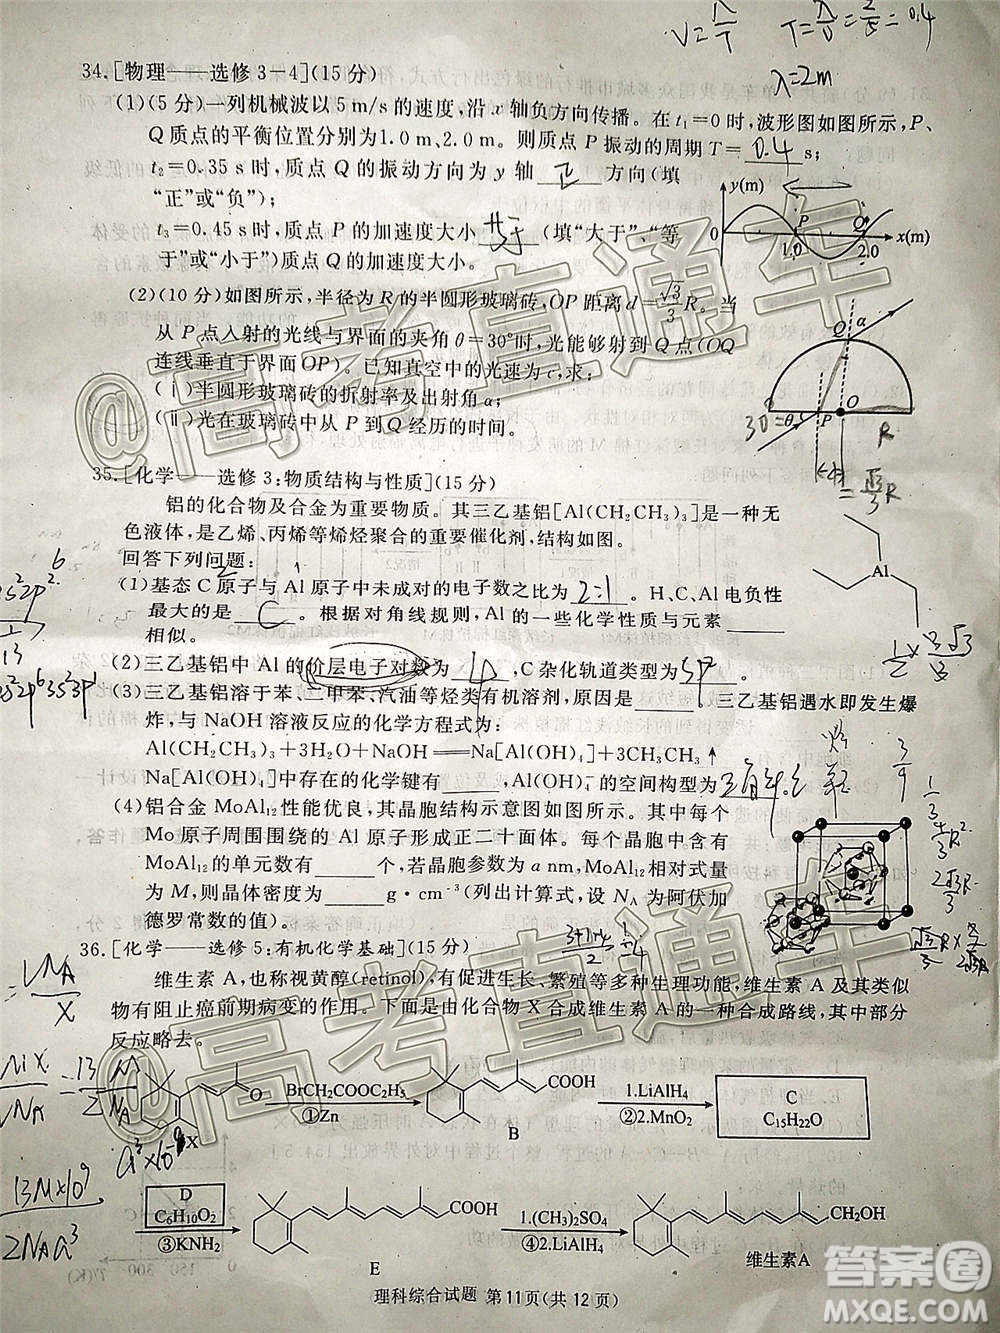 V=λ/T T=λ/υ=2/5=0.4
λ=2m
34.[物理——选修3-4](15分)
(1)(5分)一列机械波以5 m/s的速度,沿x轴负方向传播。在t₁=0时,波形图如图所示,P、
Q质点的平衡位置分别为1.0 m、2.0 m。则质点P振动的周期T= 0.4 s;
t₂=0.35 s时,质点Q的振动方向为y轴 正 方向(填
“正”或“负”);
t₃=0.45 s时,质点P的加速度大小 (填“大于”、“等
于”或“小于”)质点Q的加速度大小。
y(m)
P
Q
0
1.0
2.0
x(m)
(2)(10分)如图所示,半径为R的半圆形玻璃砖,OP距离d=√3/3R。当
从P点入射的光线与界面的夹角θ=30°时,光能够射到Q点(OQ
连线垂直于界面OP)。已知真空中的光速为c,求:
(ⅰ)半圆形玻璃砖的折射率及出射角α;
(ⅱ)光在玻璃砖中从P到Q经历的时间。
Q
α
30°=θ
P
O
R
=√3/3R
35.[化学——选修3:物质结构与性质](15分)
铝的化合物及合金为重要物质。其三乙基铝[Al(CH₂CH₃)₃]是一种无
色液体,是乙烯、丙烯等烯烃聚合的重要催化剂,结构如图。
回答下列问题:
(1)基态C原子与Al原子中未成对的电子数之比为 2:1 。H、C、Al电负性
最大的是 C 。根据对角线规则,Al的一些化学性质与元素
相似。
(2)三乙基铝中Al的价层电子对数为 ,C杂化轨道类型为 。
(3)三乙基铝溶于苯、二甲苯、汽油等烃类有机溶剂,原因是 。三乙基铝遇水即发生爆
炸,与NaOH溶液反应的化学方程式为:
Al(CH₂CH₃)₃+3H₂O+NaOH══Na[Al(OH)₄]+3CH₃CH₃↑
Na[Al(OH)₄]中存在的化学键有 ,Al(OH)₄⁻的空间构型为
(4)铝合金MoAl₁₂性能优良,其晶胞结构示意图如图所示。其中每个
Mo原子周围围绕的Al原子形成正二十面体。每个晶胞中含有
MoAl₁₂的单元数有 个;若晶胞参数为a nm,MoAl₁₂相对式量
为M,则晶体密度为 g·cm⁻³(列出计算式,设Nᴀ为阿伏加
德罗常数的值)。
Al
36.[化学——选修5:有机化学基础](15分)
维生素A,也称视黄醇(retinol),有促进生长、繁殖等多种生理功能,维生素A及其类似
物有阻止癌前期病变的作用。下面是由化合物X合成维生素A的一种合成路线,其中部分
反应略去。
O
X
BrCH₂COOC₂H₅
①Zn
COOH
B
1.LiAlH₄
②2.MnO₂
C
C₁₅H₂₂O
D
C₆H₁₀O₂
③KNH₂
COOH
E
1.(CH₃)₂SO₄
④2.LiAlH₄
CH₂OH
维生素A
理科综合试题 第11页(共12页)
@高考直通车
@高考直通车
答案圈
MXQE.COM